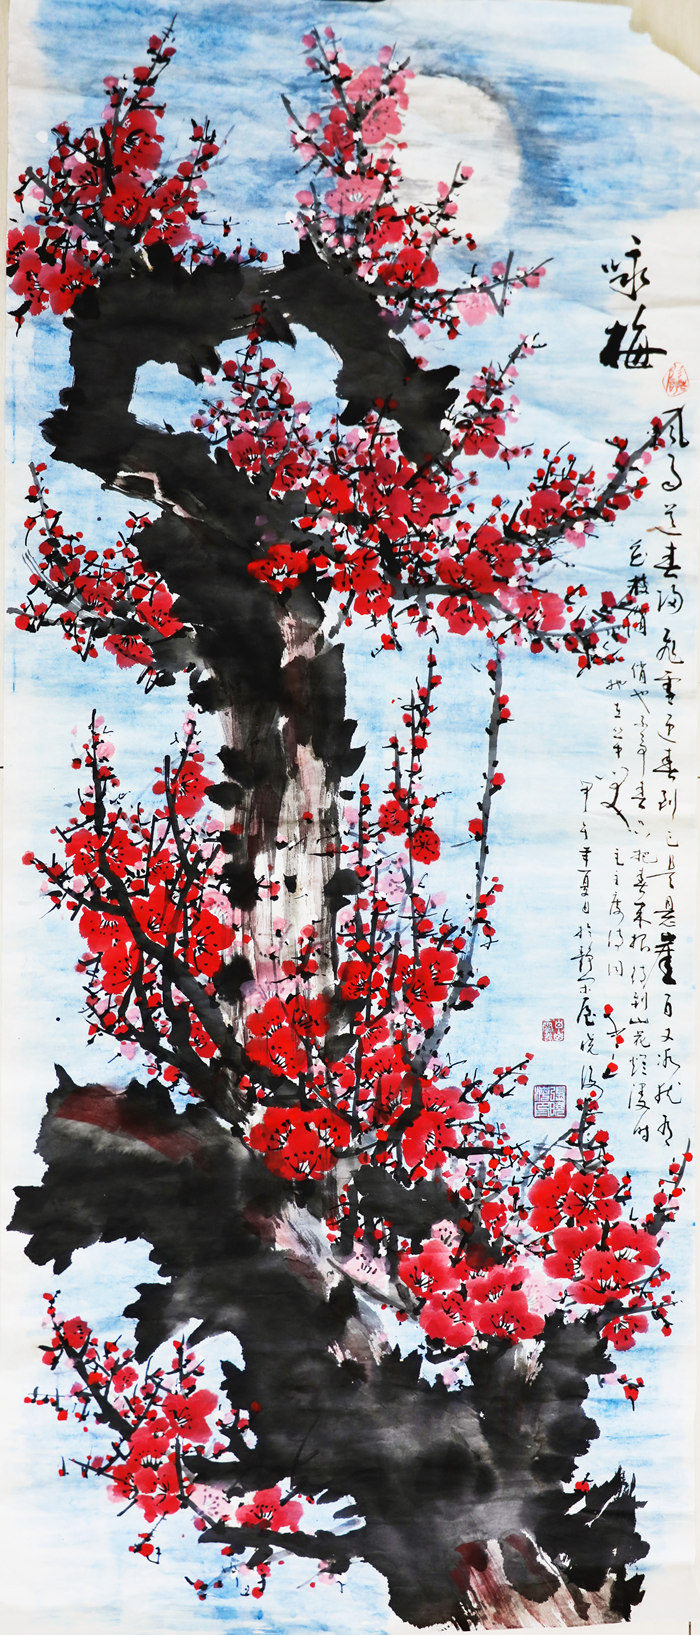 咏梅
风雨送春归飞雪迎春到已是悬崖百丈冰犹有
花枝俏 俏也不争春只把春来报待到山花烂漫时
她在丛中笑 毛主席诗词
甲午年夏月於静